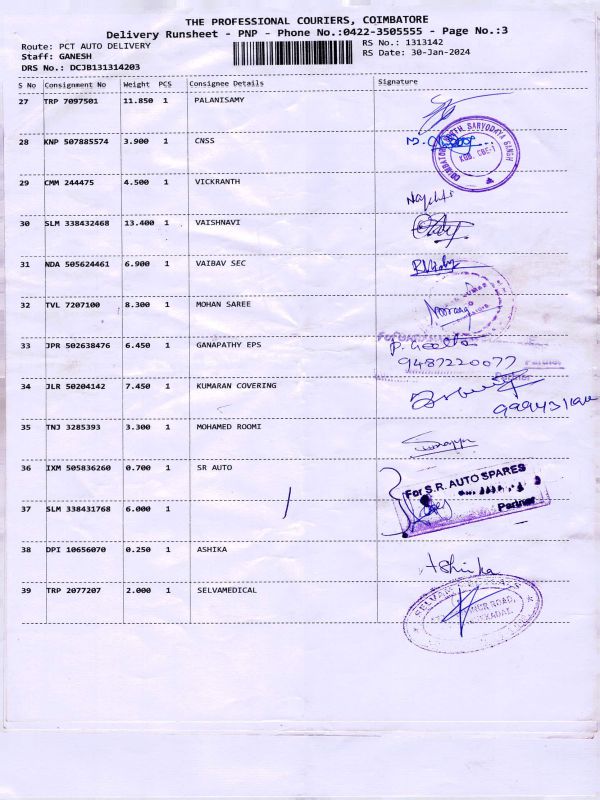 THE PROFESSIONAL COURIERS, COIMBATORE
Delivery Runsheet - PNP - Phone No.:0422-3505555 - Page No.:3
Route: PCT AUTO DELIVERY RS No.: 1313142
Staff: GANESH RS Date: 30-Jan-2024
DRS No.: DCJB131314203
S No Consignment No Weight PCS Consignee Details Signature
27 TRP 7097501 11.850 1 PALANISAMY
28 KNP 507885574 3.900 1 CNSS
29 CMM 244475 4.500 1 VICKRANTH
30 SLM 338432468 13.400 1 VAISHNAVI
31 NDA 505624461 6.900 1 VAIBAV SEC
32 TVL 7207100 8.300 1 MOHAN SAREE
33 JPR 502638476 6.450 1 GANAPATHY EPS
9487220077
34 JLR 50204142 7.450 1 KUMARAN COVERING
35 TNJ 3285393 3.300 1 MOHAMED ROOMI
36 IXM 505836260 0.700 1 SR AUTO
For S.R. AUTO SPARES
Partner
37 SLM 338431768 6.000 1
38 DPI 10656070 0.250 1 ASHIKA
Ashika
39 TRP 2077207 2.000 1 SELVAMEDICAL